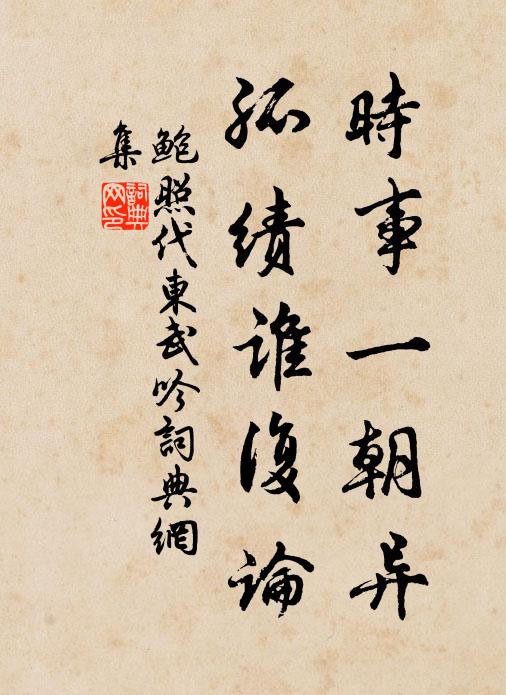 時事一朝异
孤绩誰復論
鲍照代東武吟詞典網
集
詞典
网印